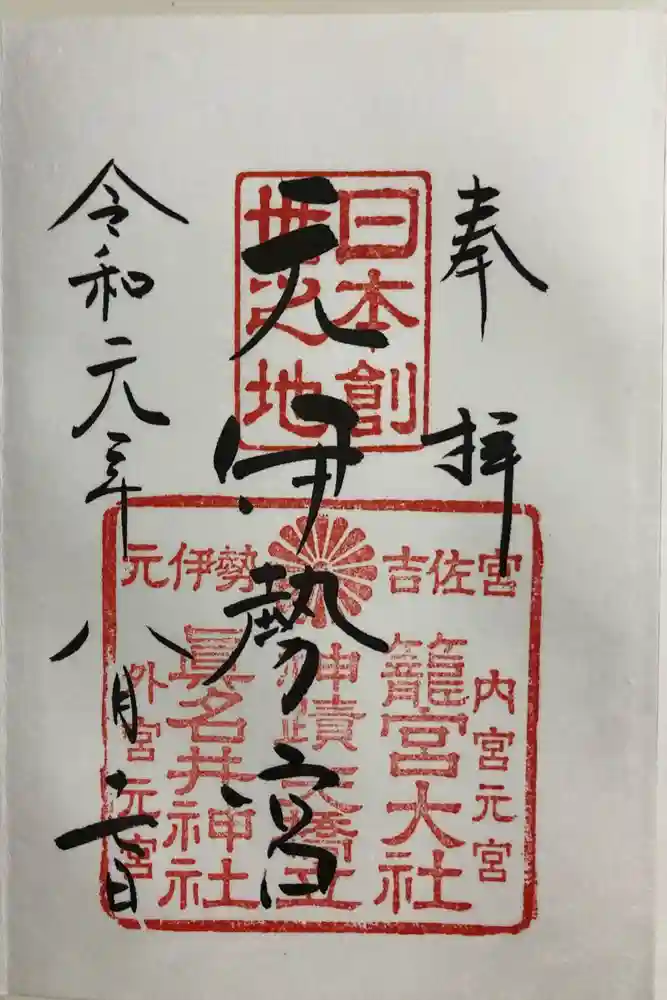 奉拝
日本創
世之地
元伊勢宮
元伊勢 吉佐宮
内宮元宮
籠宮大社
神蹟天橋立
眞名井神社
外宮元宮
令和元年八月